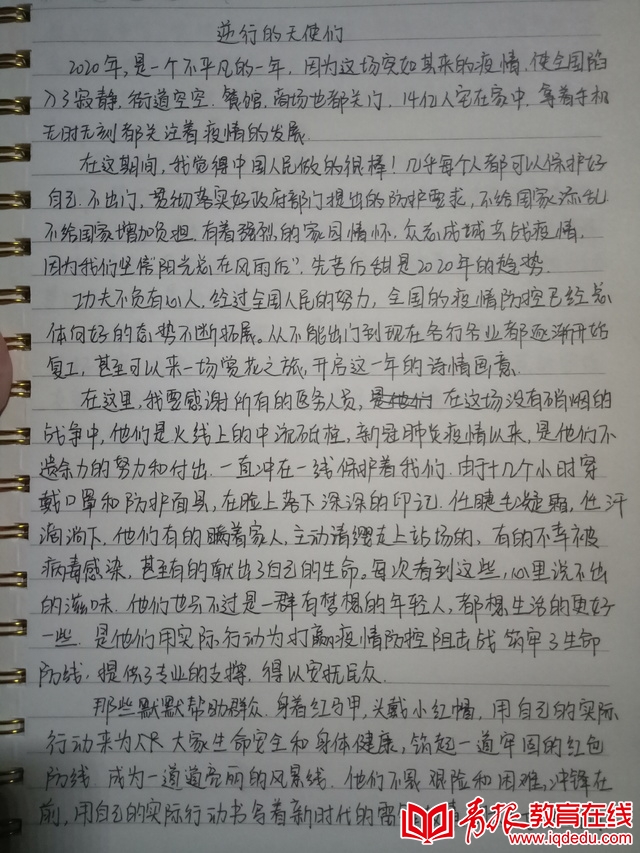 逆行的天使们
2020年,是一个不平凡的一年,因为这场突如其来的疫情,使全国陷
入了寂静,街道空空,餐馆,商场也都关门,14亿人宅在家中,拿着手机
无时无刻都关注着疫情的发展.
在这期间,我觉得中国人民做的很棒!几乎每个人都可以保护好
自己.不出门,贯彻落实好政府部门提出的防护要求,不给国家添乱
不给国家增加负担.有着强烈的家国情怀.众志成城共战疫情,
因为我们坚信“阳光总在风雨后”.先苦后甜是2020年的趋势.
功夫不负有心人.经过全国人民的努力,全国的疫情防控已经总
体向好的态势不断拓展。从不能出门到现在各行各业都逐渐开始
复工,甚至可以来一场赏花之旅,开启这一年的诗情画意.
在这里,我要感谢所有的医务人员,在这场没有硝烟的
战争中,他们是火线上的中流砥柱,新冠肺炎疫情以来,是他们不
遗余力的努力和付出.一直冲在一线保护着我们.由于十几个小时穿
戴口罩和防护面具,在脸上落下深深的印记.任睫毛凝霜,任汗
淌淌下,他们有的瞒着家人,主动请缨走上站场的,有的不幸被
病毒感染,甚至有的献出了自己的生命。每次看到这些,心里说不出
的滋味.他们也只不过是一群有梦想的年轻人,都想生活的更好
一些.是他们用实际行动为打赢疫情防控阻击战筑牢了生命
防线,提供了专业的支撑,得以安抚民众.
那些默默帮助群众.身着红马甲,头戴小红帽,用自己的实际
行动来为大家生命安全和身体健康,筑起一道牢固的红色
防线 成为一道道亮丽的风景线.他们不畏艰险和困难,冲锋在
前,用自己的实际行动书写着新时代的雷锋
青报教育在线
www.iqdedu.com